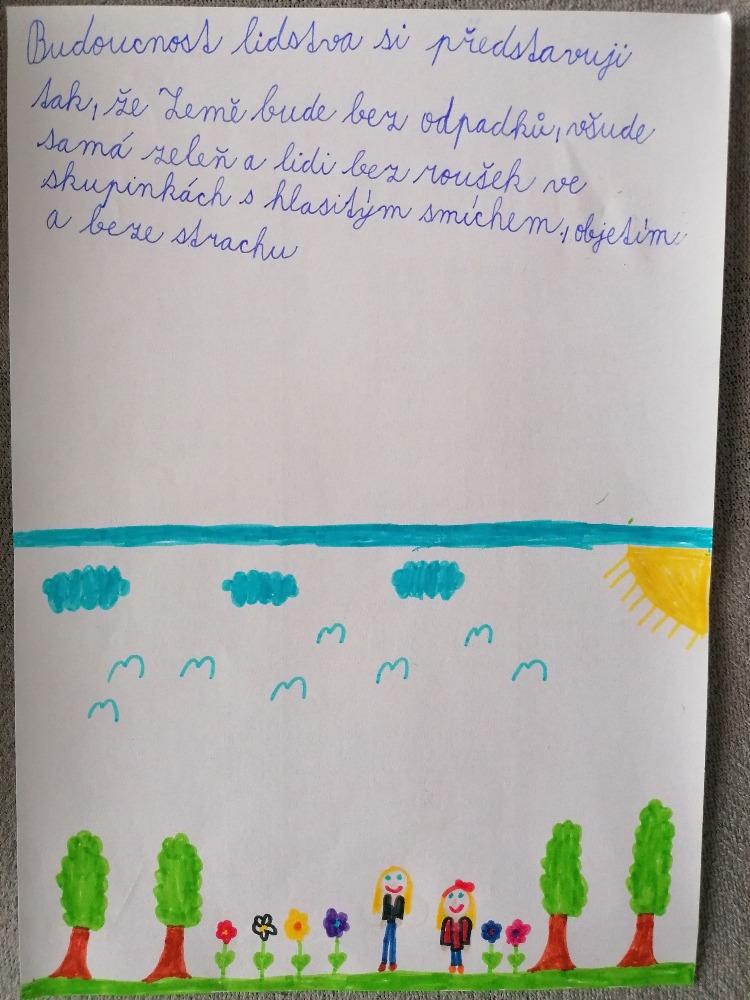 Budoucnost lidstva si představuji
tak, že Země bude bez odpadků, všude
samá zeleň a lidi bez roušek ve
skupinkách s hlasitým smíchem, objetím
a beze strachu